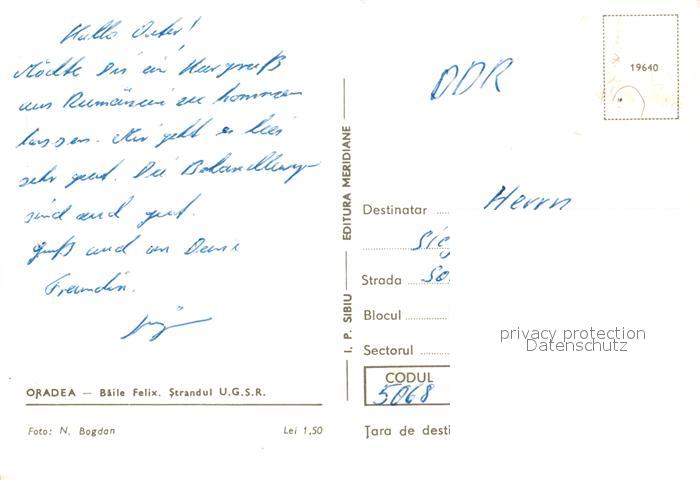 Hallo
Möchte Dir ein Kurzgruß
aus Rumänien zu kommen
lassen. Mir geht es hier
sehr gut. Die Behandlungen
sind auch gut.
Gruß auch an Deine
Freundin.
ORADEA — Băile Felix. Ștrandul U.G.S.R.
Foto: N. Bogdan
Lei 1,50
I. P. SIBIU — EDITURA MERIDIANE
19640
DDR
Destinatar
Herrn
Sig
Strada
So
Blocul
Sectorul
CODUL
5068
Țara de desti
privacy protection
Datenschutz